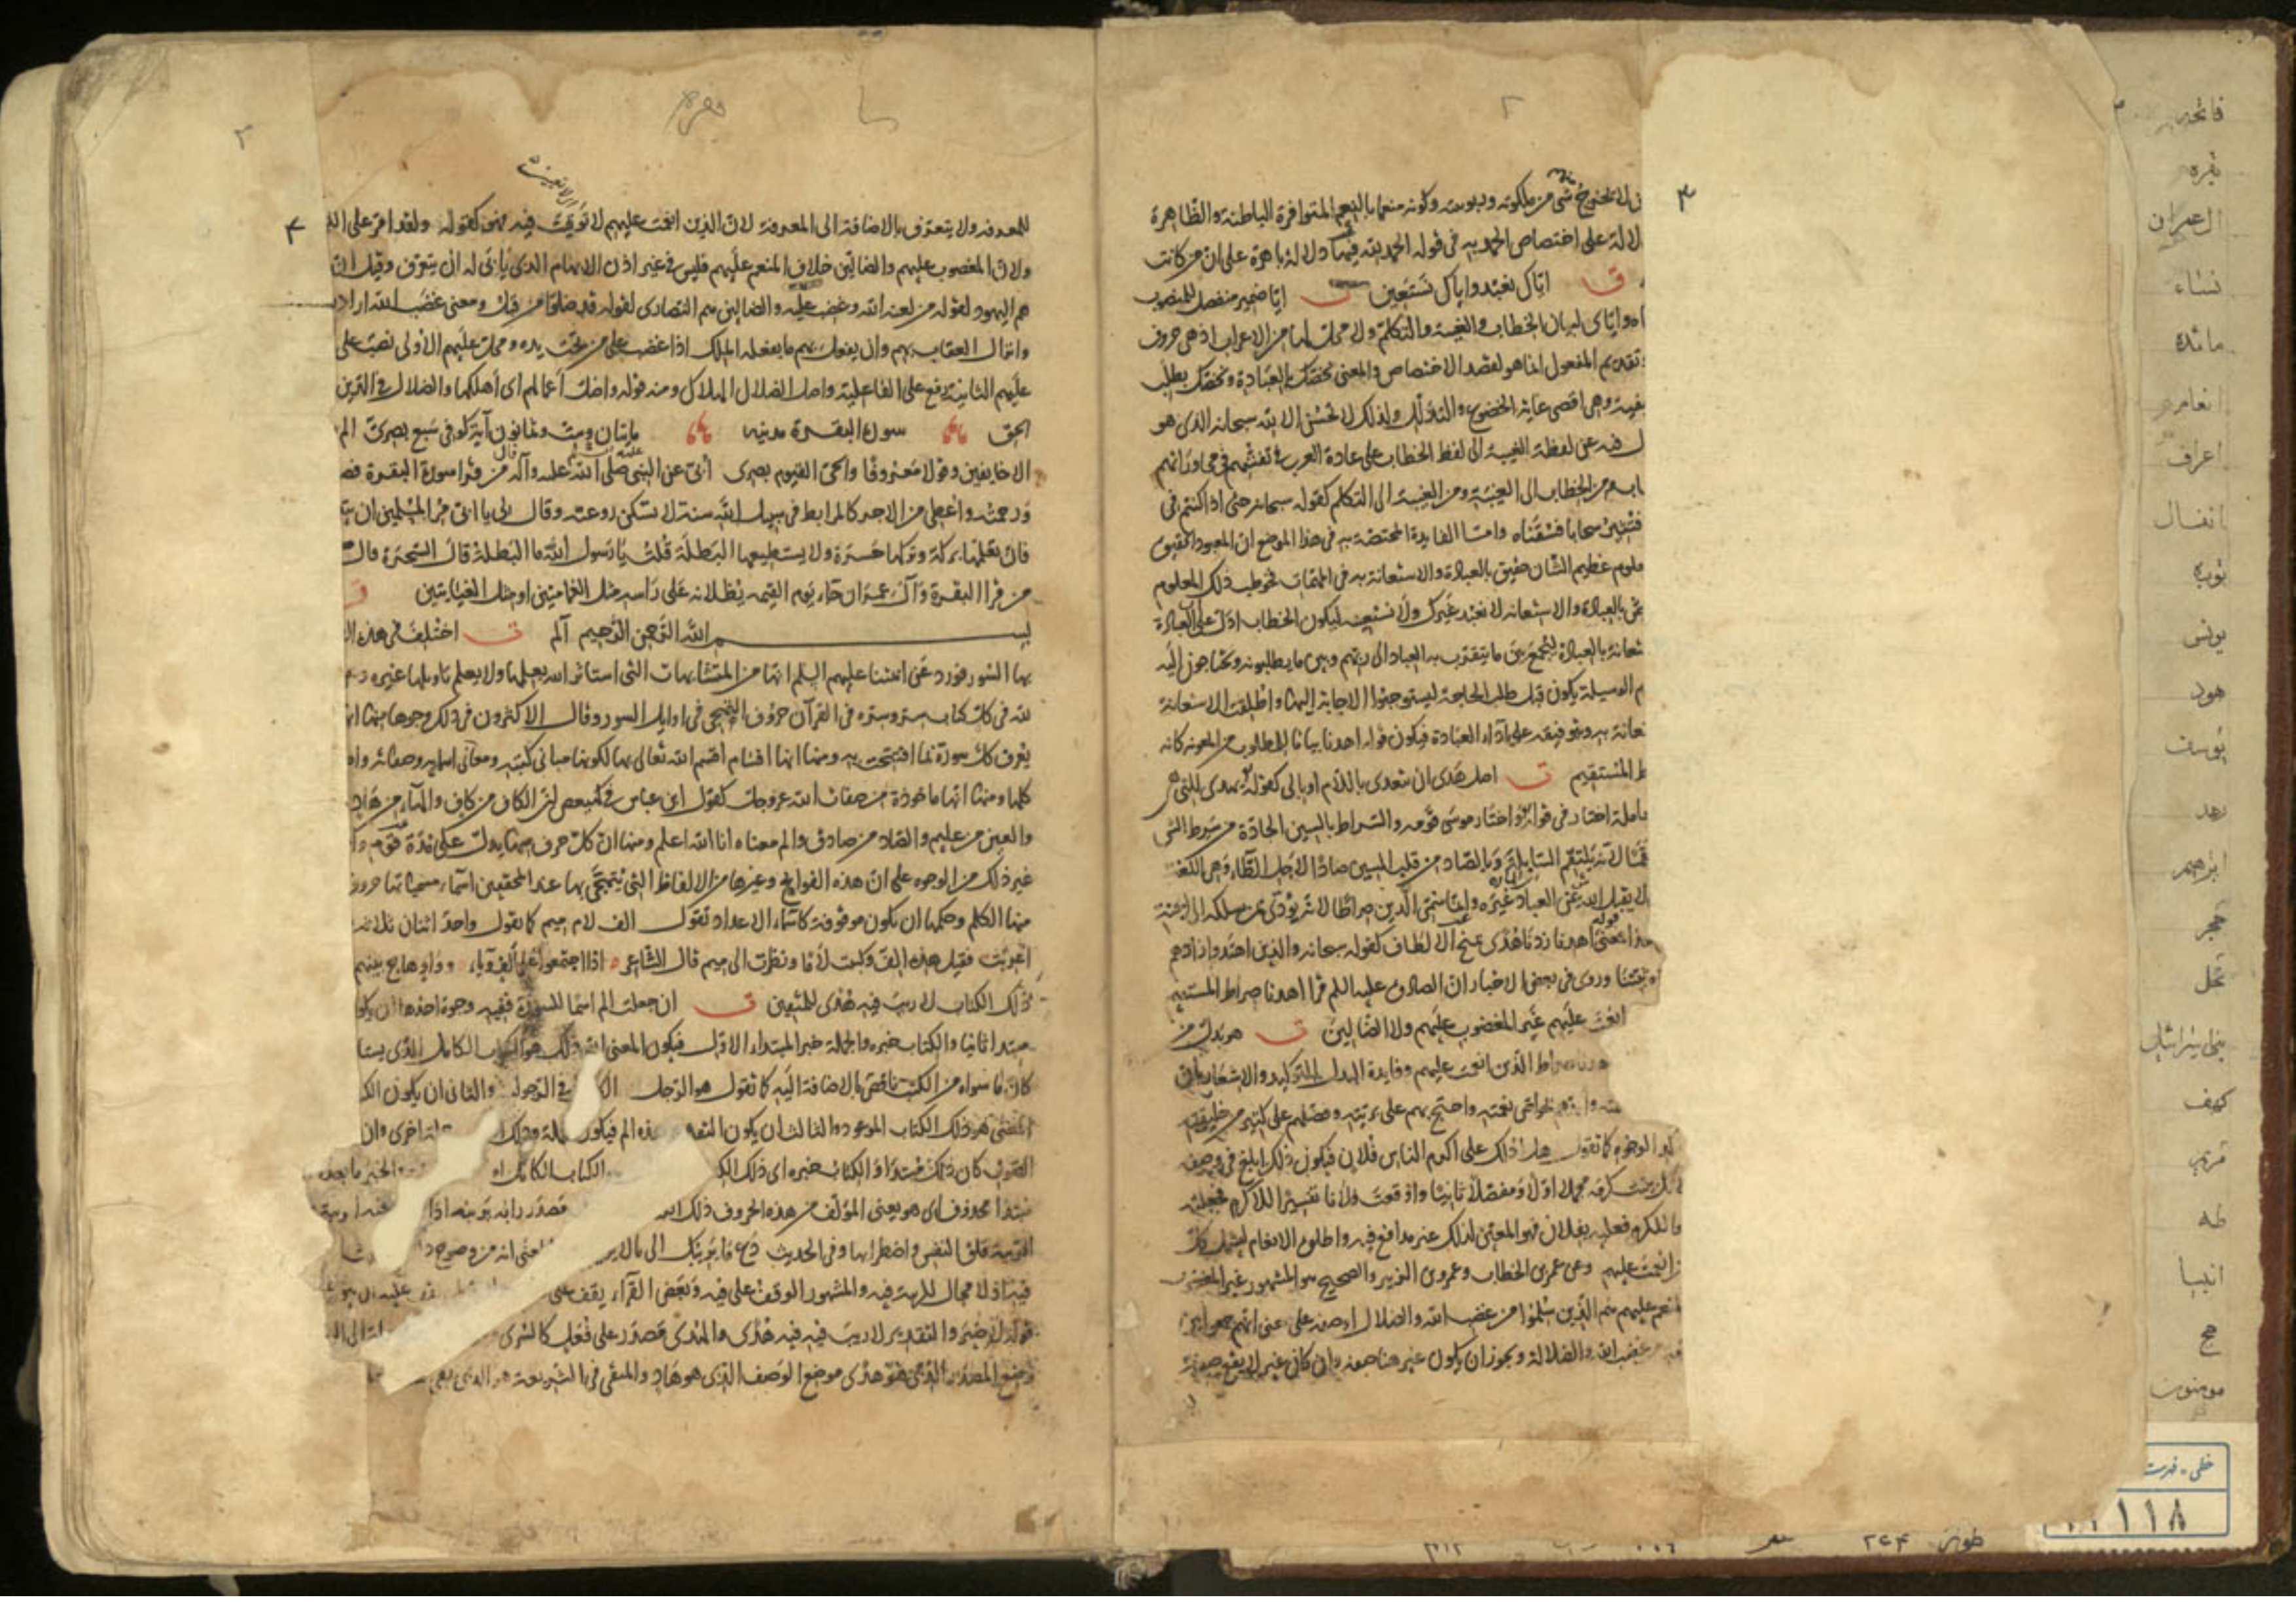 ٣
لا يخرج شيء من ملكوته وربوبيته وكونه منعما بالنعم المتوافرة الباطنة والظاهرة
لالة على اختصاص الحمد به في قوله الحمد لله فيها دلالة باهرة على ان من كانت
اياك نعبد واياك نستعين ايا ضمير منفصل للمنصوب
واياي لبيان الخطاب والغيبة والتكلم ولا محل لها من الاعراب اذ هي حروف
تقديم المفعول انما هو لقصد الاختصاص والمعنى نخصك بالعبادة ونخصك بطلب
وهي اقصى غاية الخضوع والتذلل ولذلك لا تحسن الا لله سبحانه الذي هو
عن لفظة الغيبة الى لفظ الخطاب على عادة العرب في تفننهم في محاوراتهم
من الخطاب الى الغيبة ومن الغيبة الى التكلم كقوله سبحانه حتى اذا كنتم في
فتثير سحابا فسقناه واما الفايدة المختصة به في هذا الموضع ان المعبود الحقيق
معلوم عظيم الشان حقيق بالعبادة والاستعانة به في المهمات فخوطب ذلك المعلوم
بالعبادة والاستعانة لا نعبد غيرك ولا نستعينه ليكون الخطاب ادل على ان العبادة
بالعبادة ليجمع بين ما يتقرب به العباد الى ربهم وبين ما يطلبونه ويحتاجون اليه
الوسيلة يكون قبل طلب الحاجة ليستوجبوا الاجابة اليها واطلقت الاستعانة
به وبتوفيقه على اداء العبادة فيكون قوله اهدنا بيانا للمطلوب من المعونة كانه
المستقيم اصل هدى ان يتعدى باللام او بالى كقوله يهدي للتي هي
معاملة اختار في قوله واختار موسى قومه والسراط بالسين الجادة من سرط الشيء
لانه يلتقم السابلة وبالصاد من قلب السين صادا لاجل الطاء وهي اللغة
لا يقبل الله عن العباد غيره وانما سمي الدين صراطا لانه يؤدي من يسلكه الى الجنة
معنى اهدنا زدنا هدى بمنح الالطاف كقوله سبحانه والذين اهتدوا زادهم
وروي في بعض الاخبار ان الصادق عليه السلم قرا اهدنا صراط المستقيم
انعمت عليهم غير المغضوب عليهم ولا الضالين هو بدل من
صراط الذين انعمت عليهم وفايدة البدل التوكيد والاشعار بان
واحتج بهم على بريته وفضلهم على كثير من خليقته
كما تقول هل ادلك على اكرم الناس فلان فيكون ذلك ابلغ في وصفه
كرمه مجملا اولا ومفصلا ثانيا واوقعت فلانا تفسيرا للاكرم فجعلته
للكرم فعليه بفلان فهو المعين لذلك غير مدافع فيه واطلق الانعام ليشمل كل
انعمت عليهم وعن عمر بن الخطاب وعمرو بن الزبير والصحيح هو المشهور غير المغضوب
المنعم عليهم هم الذين سلموا من غضب الله والضلال او صفة على معنى انهم جمعوا بين
غضب الله والضلالة ويجوز ان يكون غير هنا صفة وان كان غير لا يقع صفة
٤
للمعرفة ولا يتعرف بالاضافة الى المعرفة لان الذين انعمت عليهم لا توقيت فيه فهو كقوله ولقد امر على
ولان المغضوب عليهم والضالين خلاف المنعم عليهم فليس في غير اذن الابهام الذي يأبى له ان يتعرف وقيل ان
هم اليهود لقوله من لعنه الله وغضب عليه والضالين هم النصارى لقوله قد ضلوا من قبل ومعنى غضب الله ارادة
وانزال العقاب بهم وان يفعل بهم ما يفعله الملك اذا غضب على من تحت يده ومحل عليهم الاولى نصب على
عليهم الثانية رفع على الفاعلية واصل الضلال الهلاك ومنه قوله واضل اعمالهم اي اهلكها والضلال في الدين
الحق سورة البقرة مدنية مايتان وست وثمانون آية كوفي سبع بصري الم
الا خايفين وقولا معروفا والحي القيوم بصري ابي عن النبي صلى الله عليه وآله قال من قرا سورة البقرة
ورحمته واعطي من الاجر كالمرابط في سبيل الله سنة لا تسكن روعته وقال لي يا ابي مر المسلمين ان
فان تعلمها بركة وتركها حسرة ولا يستطيعها البطلة قلت يا رسول الله ما البطلة قال السحرة وقال
من قرا البقرة وآل عمران جاء يوم القيمة يظلانه على راسه مثل الغمامتين او مثل الغيايتين
بسم الله الرحمن الرحيم الم اختلف في هذه
بها السور فورد عن ائمتنا عليهم السلم انها من المتشابهات التي استاثر الله بعلمها ولا يعلم تاويلها غيره
لله في كل كتاب سر وسره في القرآن حروف التهجي في اوايل السور وقال الاكثرون في ذلك وجوها منها
يعرف كل سورة بما افتتحت به ومنها انها اقسام اقسم الله تعالى بها لكونها مباني كتبه ومعاني اسمايه وصفاته
كلها ومنها انها ماخوذة من صفات الله عز وجل كقول ابن عباس في كهيعص ان الكاف من كاف والهاء من هاد
والعين من عليم والصاد من صادق والم معناه انا الله اعلم ومنها ان كل حرف منها يدل على مدة قوم
غير ذلك من الوجوه على ان هذه الفواتح وغيرها من الالفاظ التي يتهجى بها عند المحققين اسماء مسمياتها حروف
منها الكلم وحكمها ان تكون موقوفة كاسماء الاعداد تقول الف لام ميم كما تقول واحد اثنان ثلاثة
اعربت فقيل هذه الف وكتبت لاما ونظرت الى ميم قال الشاعر اذا اجتمعوا على الف وباء وواو هاج بينهم
ذلك الكتاب لا ريب فيه هدى للمتقين ان جعلت الم اسما للسورة ففيه وجوه احدها ان
مبتدا ثانيا والكتاب خبره والجملة خبر المبتدا الاول فيكون المعنى ان ذلك هو الكتاب الكامل الذي
كان ما سواه من الكتب ناقص بالاضافة اليه كما تقول هو الرجل في الرجولية والثاني ان يكون
ذلك الكتاب الموعود والثالث ان يكون اخرى وان
كان ذلك مبتدا والكتاب خبره اي ذلك الكتاب الكامل الخبر ما بعده
مبتدا محذوف اي هو يعني المؤلف من هذه الحروف ذلك مصدر رابه يريبه اذا
الريبة قلق النفس واضطرابها وفي الحديث دع ما يريبك الى ما لا انه من وضوح
فيه اذ لا مجال للريبة فيه والمشهور الوقف على فيه وبعض القراء يقف على
والتقدير لا ريب فيه فيه هدى والهدى مصدر على فعل كالسرى
وضع المصدر الذي هو هدى موضع الوصف الذي هو هاد والمتقي في الشريعة هو الذي
فاتحه
بقره
ال عمران
نساء
مائده
انعام
اعراف
انفال
توبه
يونس
هود
يوسف
رعد
ابرهيم
حجر
نحل
بني اسرائيل
كهف
مريم
طه
انبيا
حج
مومنون
خطی - فهرست
١١٨
طول ٢٤٣